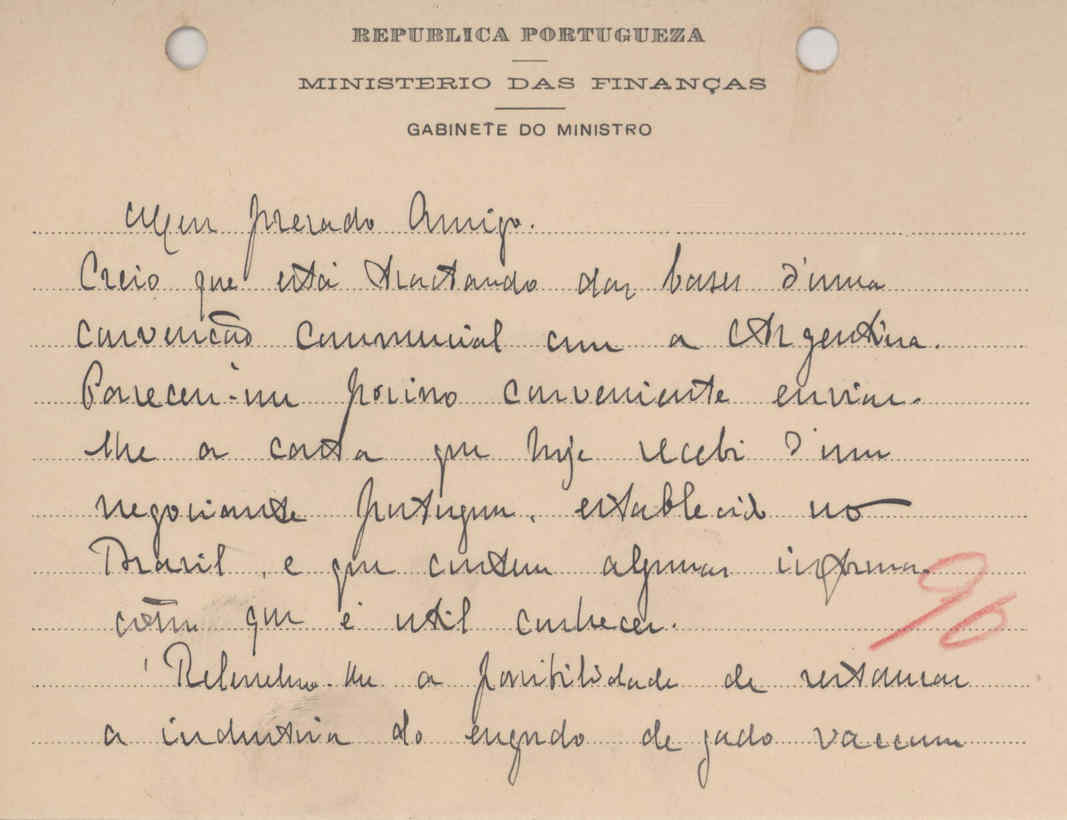 REPUBLICA PORTUGUEZA
MINISTERIO DAS FINANÇAS
GABINETE DO MINISTRO
Meu prezado Amigo.
Creio que está tractando das bases d'uma
convenção commercial com a Argentina.
Pareceu-me por isso conveniente enviar-
lhe a carta que hoje recebi d'um
negociante portuguez, estabelecido no
Brazil, e que contem algumas informa-
ções que é util conhecer.
96
Relembro-lhe a possibilidade de restaurar
a industria do engordo de gado vaccum